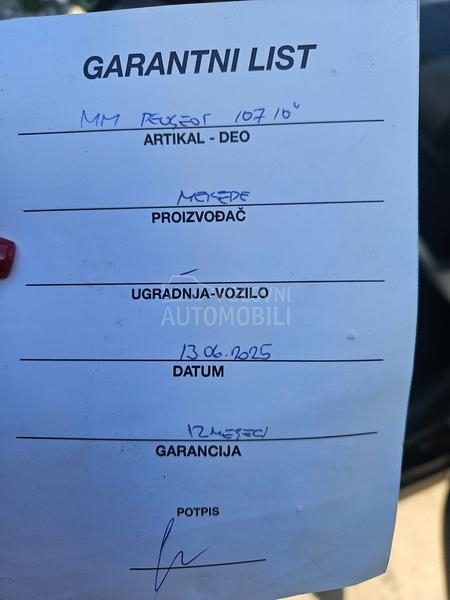 GARANTNI LIST
MM PEUGEOT 107 10"
ARTIKAL - DEO
PROIZVOĐAČ
-
UGRADNJA-VOZILO
POLOVNI
AUTOMOBILI
13.06.2025
DATUM
12 MESECI
GARANCIJA
POTPIS